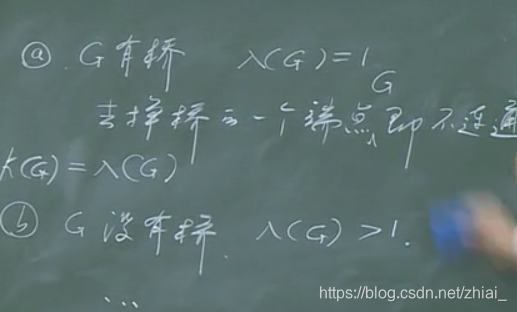 ⓐ. G有桥 λ(G)=1
去掉桥的一个端点,G即不连通
K(G)=λ(G)
ⓑ G没有桥. λ(G)>1.
...
https://blog.csdn.net/zhiai_